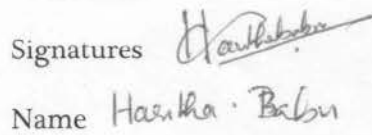 Signatures Harithababu
Name Haritha . Babu